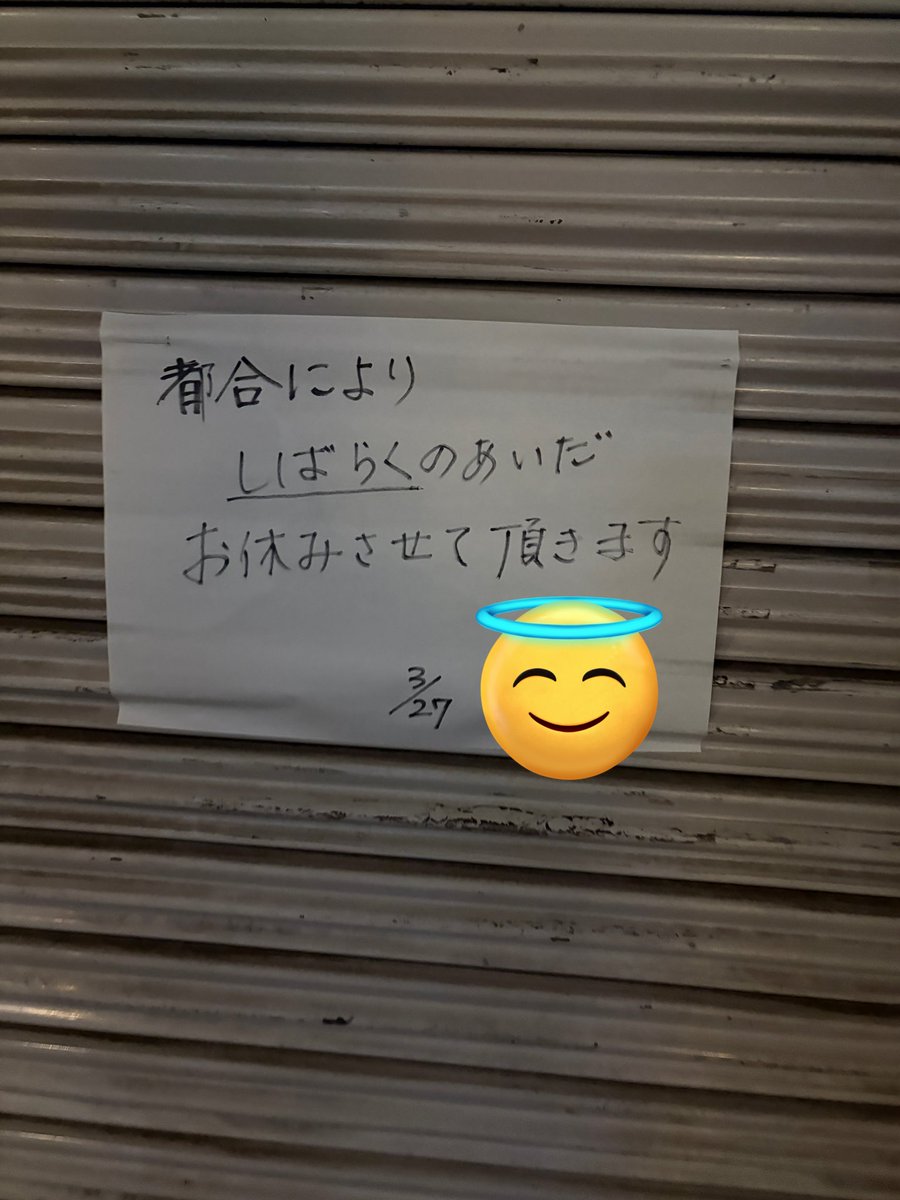 都合により
しばらくのあいだ
お休みさせて頂きます
3/27